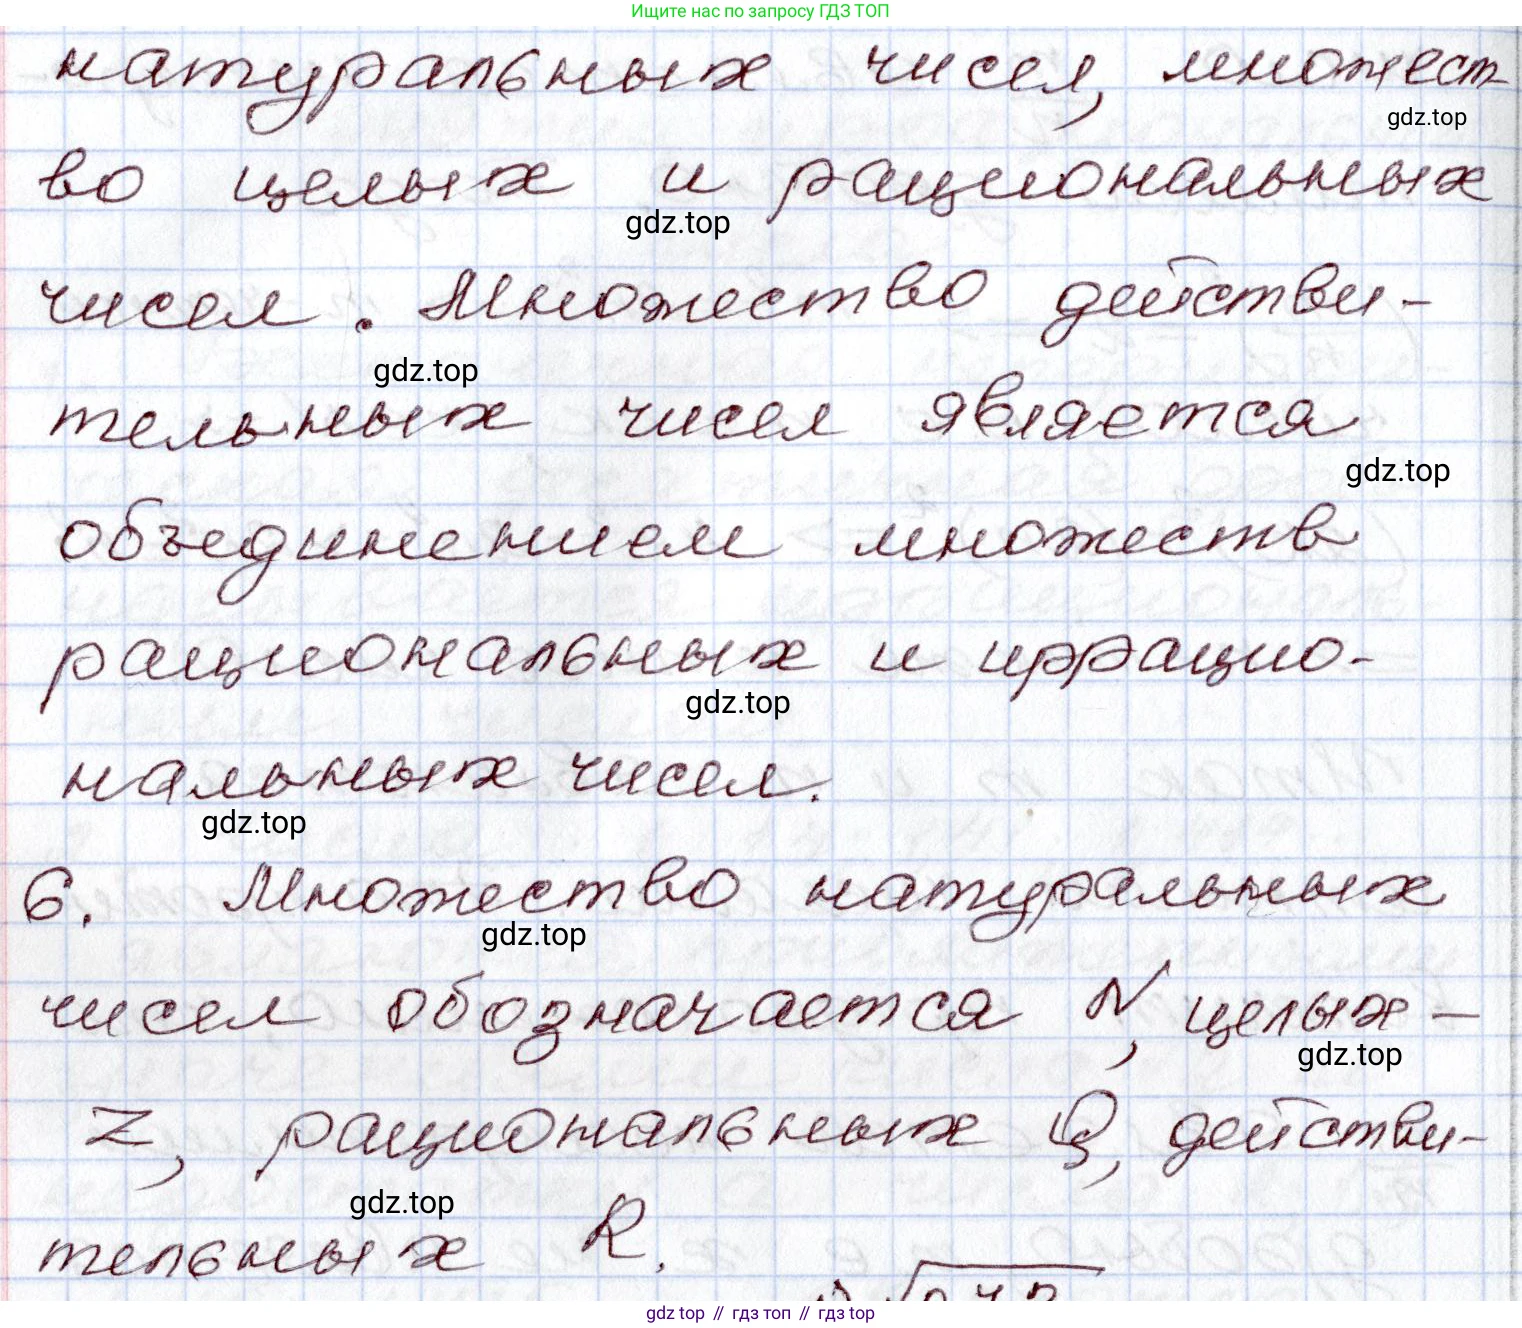 Ищите нас по запросу ГДЗ ТОП
натуральных чисел, множест
gdz.top
во целых и рациональных
gdz.top
чисел. Множество действи-
gdz.top
тельных чисел является
gdz.top
объединением множеств
рациональных и иррацио-
gdz.top
нальных чисел.
gdz.top
6. Множество натуральных
gdz.top
чисел обозначается N, целых -
gdz.top
Z, рациональных Q, действи-
gdz.top
тельных R.
gdz top // гдз топ // гдз top